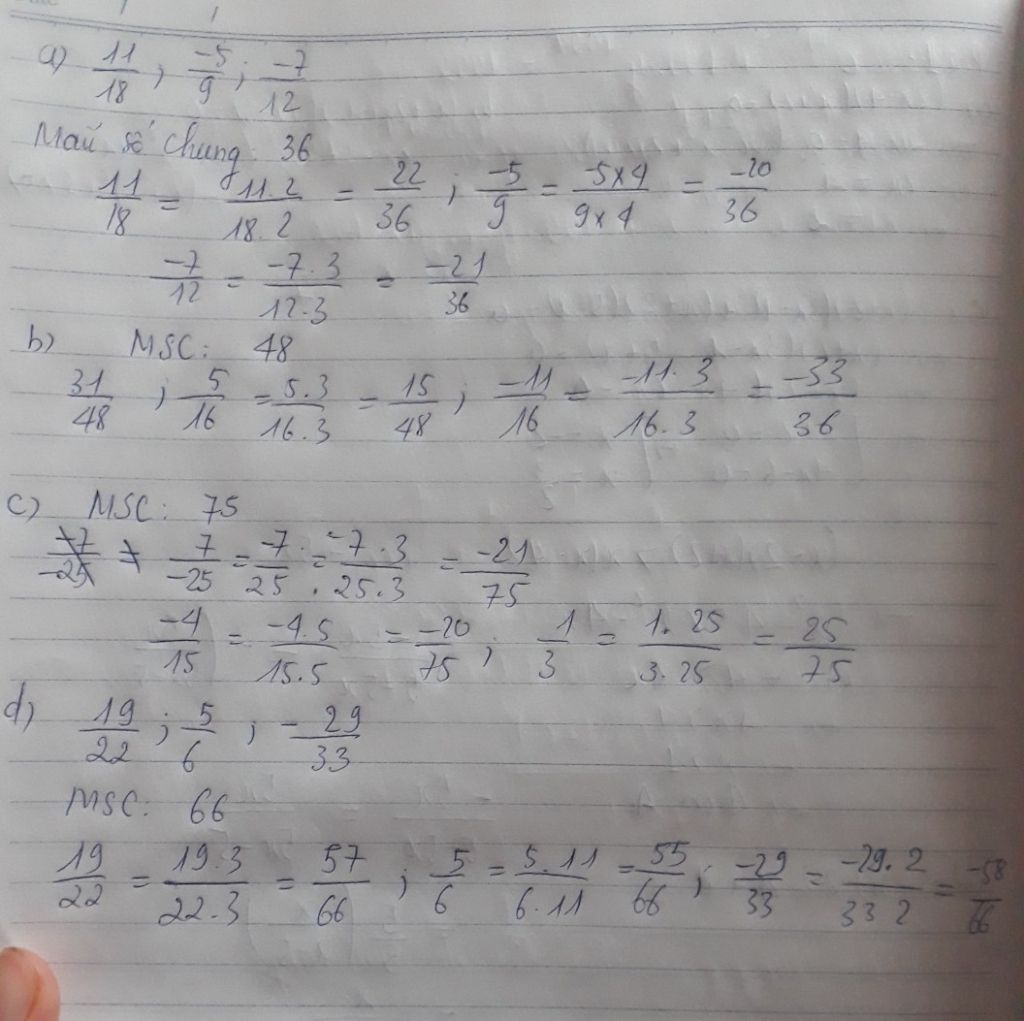 a) 11/18 ; -5/9 ; -7/12
Mẫu số chung: 36
11/18 = 11.2/18.2 = 22/36 ; -5/9 = -5x4/9x4 = -20/36
-7/12 = -7.3/12.3 = -21/36
b) MSC: 48
31/48 ; 5/16 = 5.3/16.3 = 15/48 ; -11/16 = -11.3/16.3 = -33/36
c) MSC: 75
7/-25 = -7/25 = -7.3/25.3 = -21/75
-4/15 = -4.5/15.5 = -20/75 ; 1/3 = 1.25/3.25 = 25/75
d) 19/22 ; 5/6 ; -29/33
MSC: 66
19/22 = 19.3/22.3 = 57/66 ; 5/6 = 5.11/6.11 = 55/66 ; -29/33 = -29.2/33 2 = -58/66